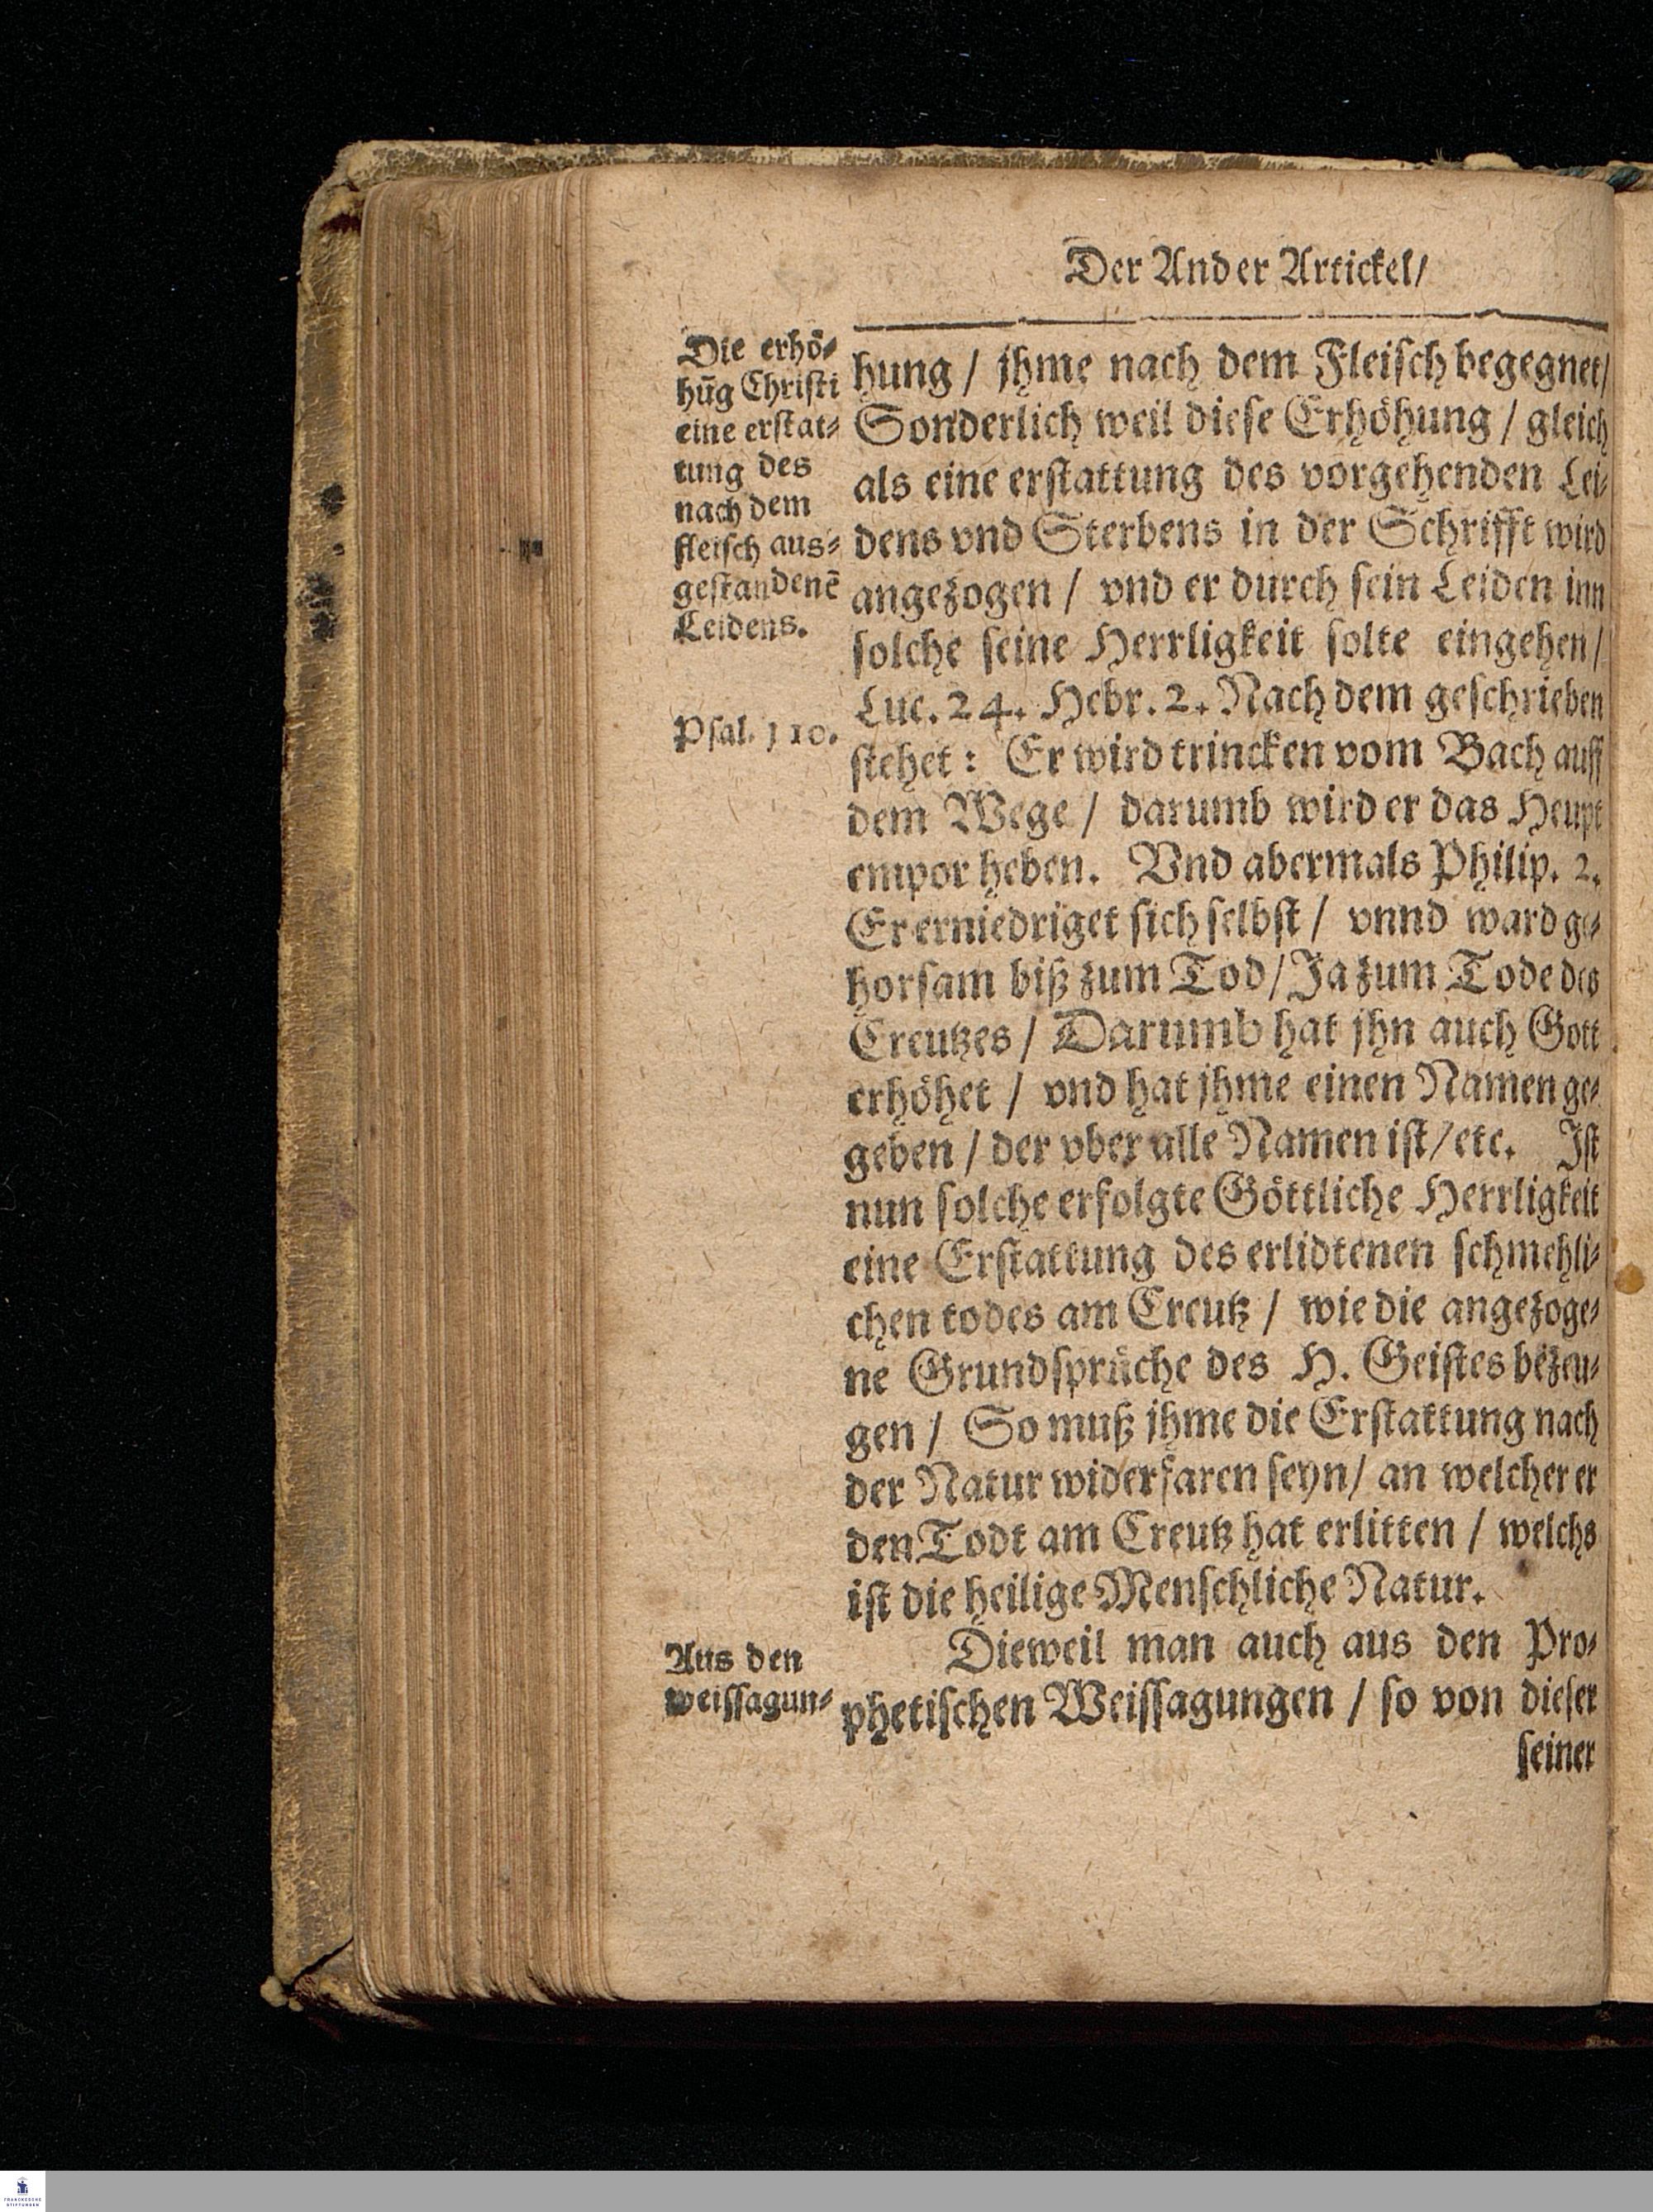 Der Ander Artickel/
Die erhö⸗
hūg Christi
eine erstat⸗
tung des
nach dem
fleisch aus⸗
gestandenē
Leidens.
Psal. 110.
hung / jhme nach dem Fleisch begegnet/
Sonderlich weil diese Erhöhung / gleich
als eine erstattung des vorgehenden Lei⸗
dens vnd Sterbens in der Schrifft wird
angezogen / vnd er durch sein Leiden inn
solche seine Herrligkeit solte eingehen/
Luc. 24. Hebr. 2. Nach dem geschrieben
stehet: Er wird trincken vom Bach auff
dem Wege / darumb wird er das Heupt
empor heben. Vnd abermals Philip. 2.
Er erniedriget sich selbst / vnnd ward ge⸗
horsam biß zum Tod/ Ja zum Tode des
Creutzes / Darumb hat jhn auch Gott
erhöhet / vnd hat jhme einen Namen ge⸗
geben / der vber alle Namen ist/etc. Ist
nun solche erfolgte Göttliche Herrligkeit
eine Erstattung des erlidtenen schmehli⸗
chen todes am Creutz / wie die angezoge⸗
ne Grundsprüche des H. Geistes bezeu⸗
gen / So muß jhme die Erstattung nach
der Natur widerfaren seyn/ an welcher er
den Todt am Creutz hat erlitten / welchs
ist die heilige Menschliche Natur.
Aus den
weissagun⸗
Dieweil man auch aus den Pro⸗
phetischen Weissagungen / so von dieser
seiner
FRANCKESCHE
STIFTUNGEN